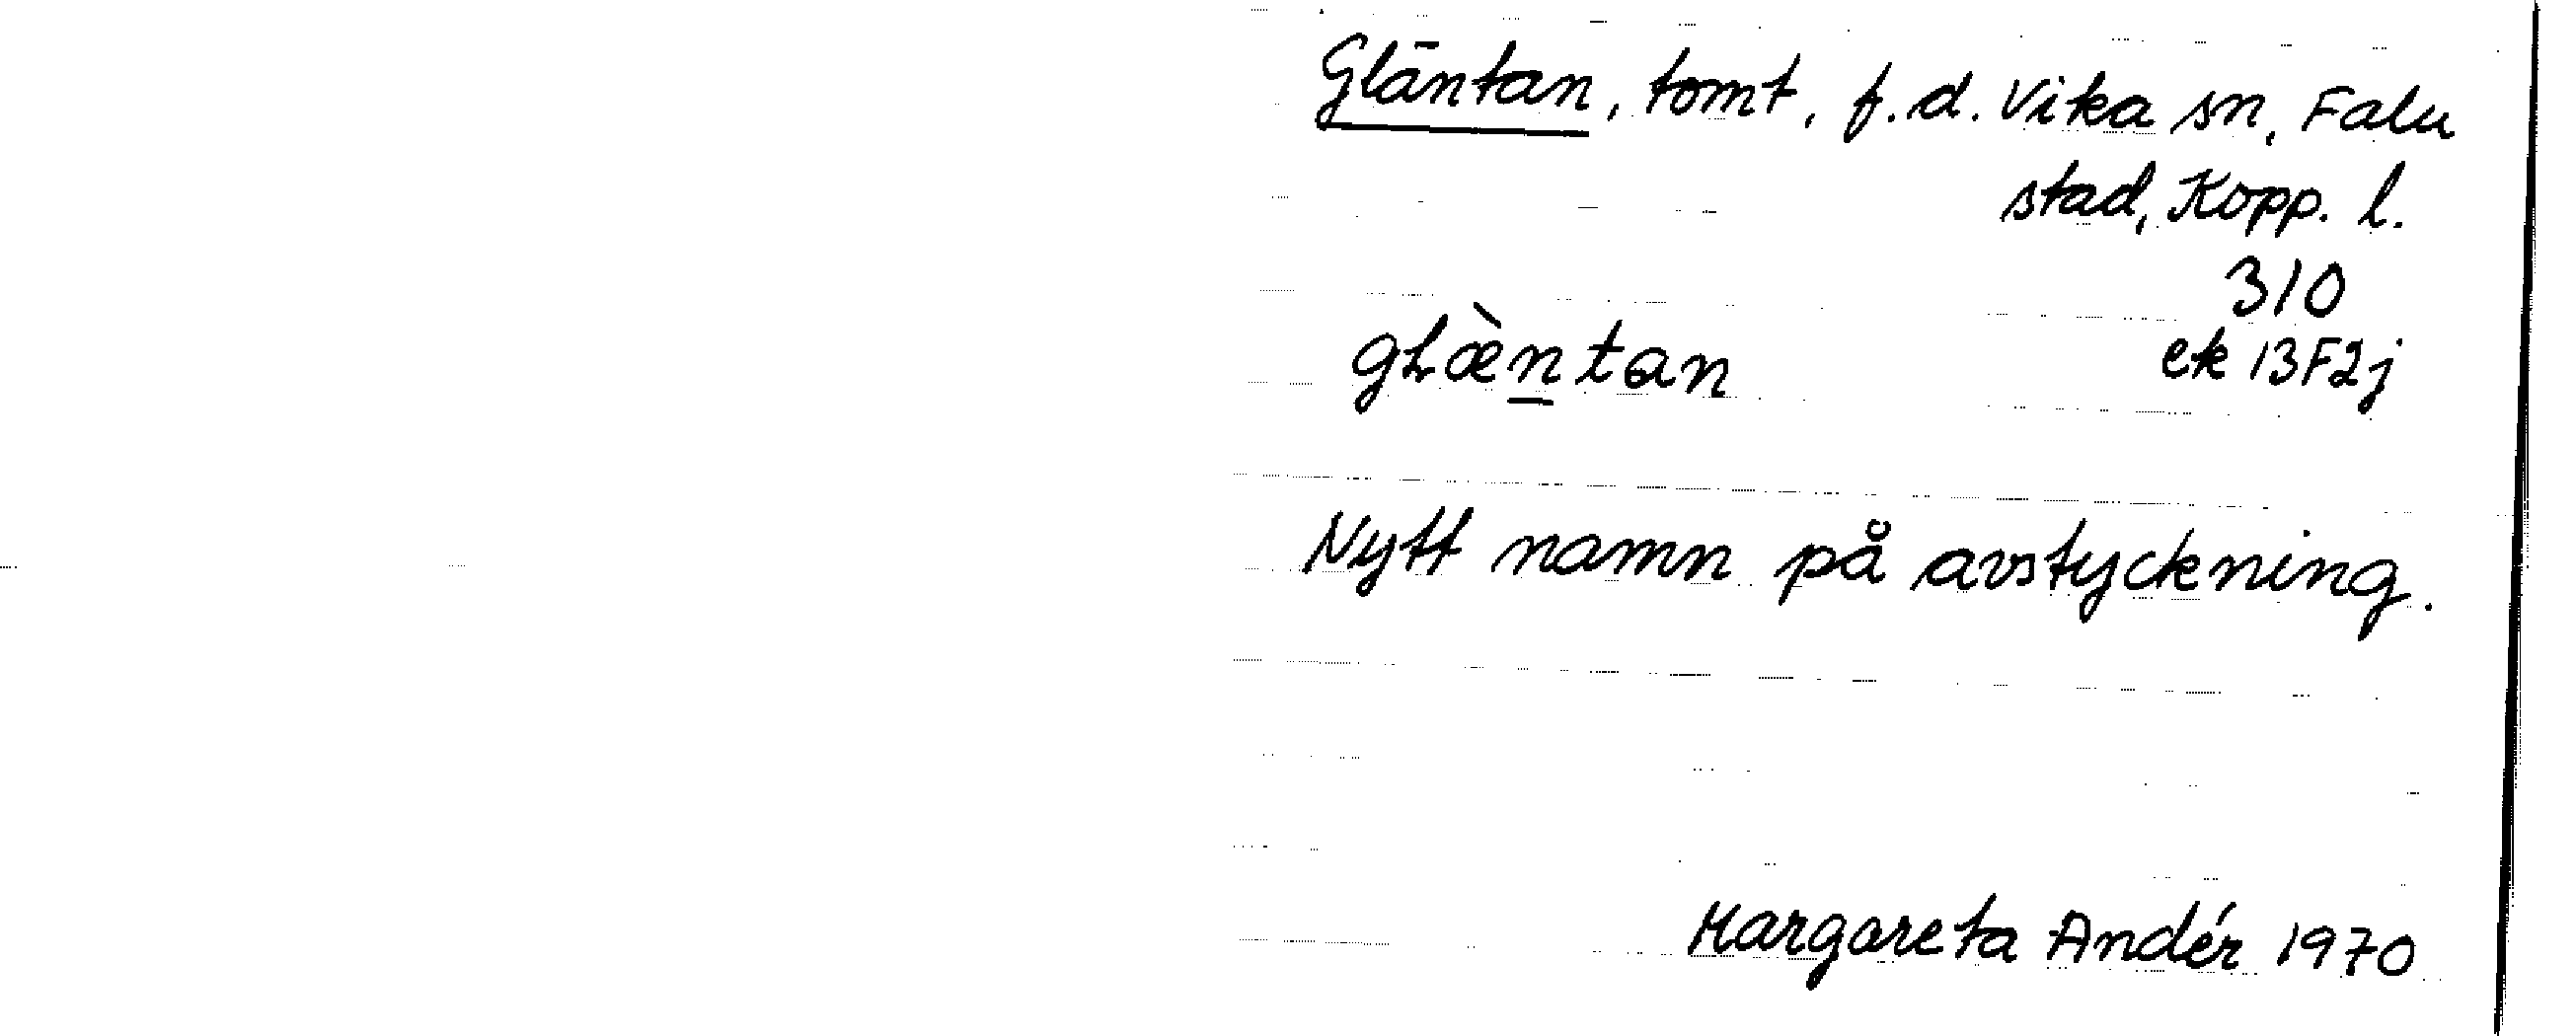 Gläntan, tomt, f.d. Vika sn, Falu
stad, Kopp. l.
310
glæ̀n̲tan
ek 13F2j
Nytt namn på avstyckning.
Margareta Andér 1970